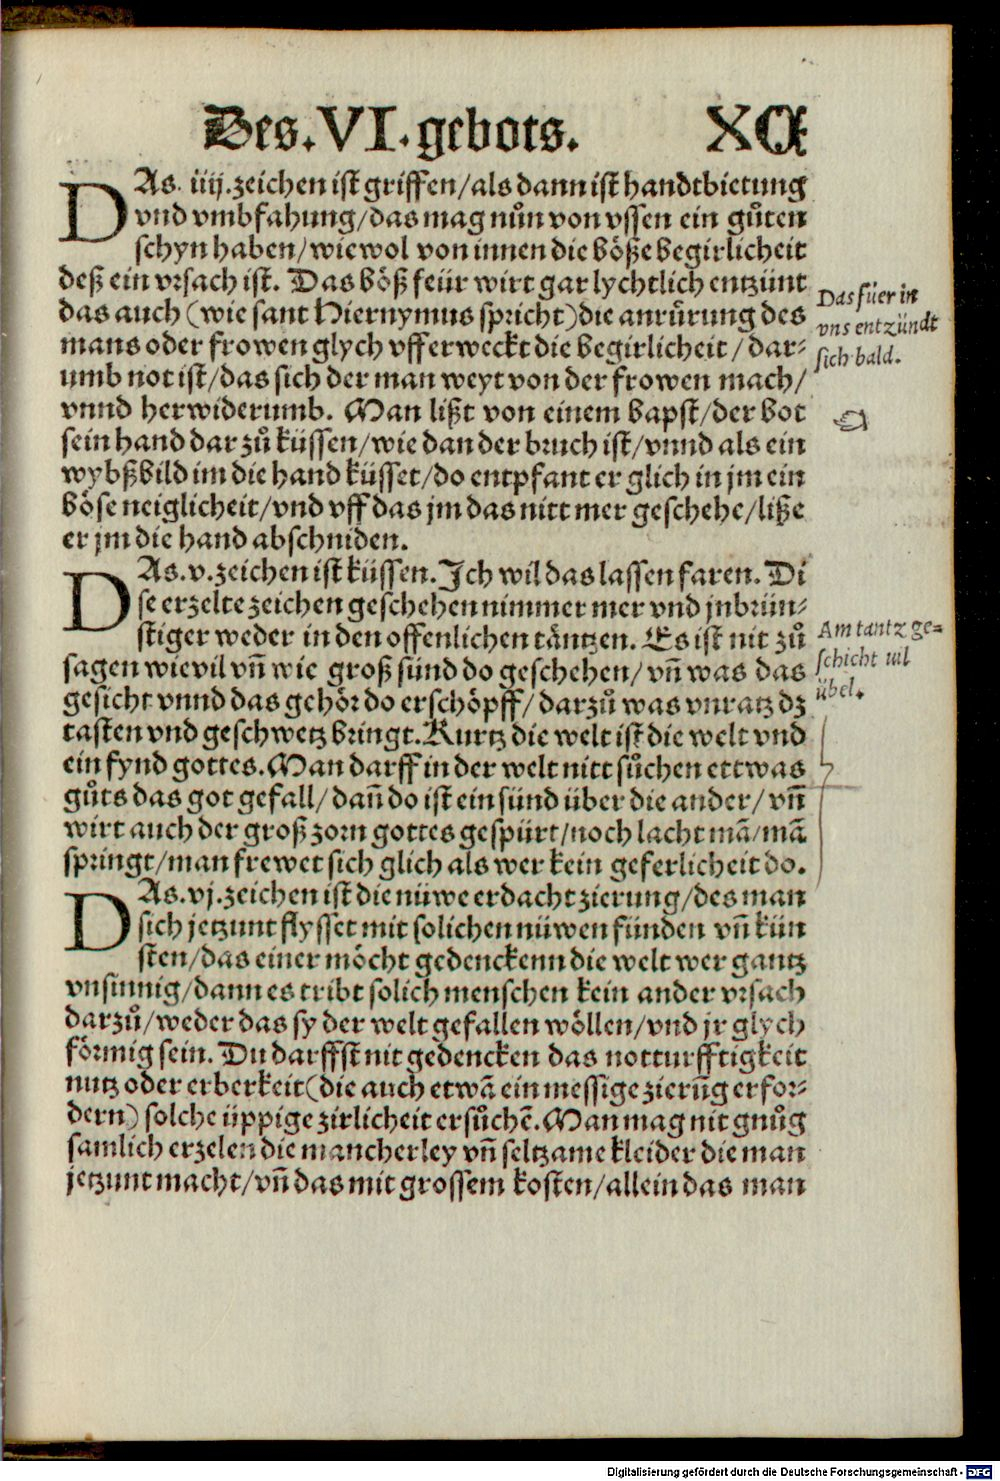 Des.VI.gebots. XCI
DAs. iiij.zeichen ist griffen/als dann ist handtbietung
vnd vmbfahung/das mag nůn von vssen ein gůten
schyn haben/wiewol von innen die böße begirlicheit
deß ein vrsach ist. Das böß feür wirt gar lychtlich entzünt
das auch (wie sant Hiernymus spricht) die anrůrung des
mans oder frowen glych vfferweckt die begirlicheit/dar-
umb not ist/das sich der man weyt von der frowen mach/
vnnd herwiderumb. Man lißt von einem bapst/der bot
sein hand dar zů küssen/wie dan der bruch ist/vnnd als ein
wybßbild im die hand küsset/do entpfant er glich in jm ein
böse neiglicheit/vnd vff das jm das nitt mer geschehe/liße
er jm die hand abschniden.
Das füer in
vns entzündt
sich bald.
DAs.v.zeichen ist küssen. Ich wil das lassen faren. Di
se erzelte zeichen geschehen nimmer mer vnd jnbrün-
stiger weder in den offenlichen täntzen. Es ist nit zů
sagen wievil vñ wie groß sünd do geschehen/ vñ was das
gesicht vnnd das gehör do erschöpff/ darzů was vnratz dz
tasten vnd geschwetz bringt. Kurtz die welt ist die welt vnd
ein fynd gottes. Man darff in der welt nitt sůchen ettwas
gůts das got gefall/ dañ do ist ein sünd über die ander/ vñ
wirt auch der groß zorn gottes gespürt/noch lacht mã/mã
springt/man frewet sich glich als wer kein geferlicheit do.
Am tantz ge=
schicht uil
übel.
DAs.vj.zeichen ist die nüwe erdacht zierung/des man
sich jetzunt flysset mit solichen nüwen fünden vñ kün
sten/das einer möcht gedenckenn die welt wer gantz
vnsinnig/dann es tribt solich menschen kein ander vrsach
darzů/weder das sy der welt gefallen wöllen/vnd jr glych
förmig sein. Du darffst nit gedencken das notturfftigkeit
nutz oder erberkeit (die auch etwã ein messige zierũg erfor-
dern) solche üppige zirlicheit ersůchẽ. Man mag nit gnůg
samlich erzelen die mancherley vñ seltzame kleider die man
jetzunt macht/vñ das mit grossem kosten/allein das man
Digitalisierung gefördert durch die Deutsche Forschungsgemeinschaft - DFG